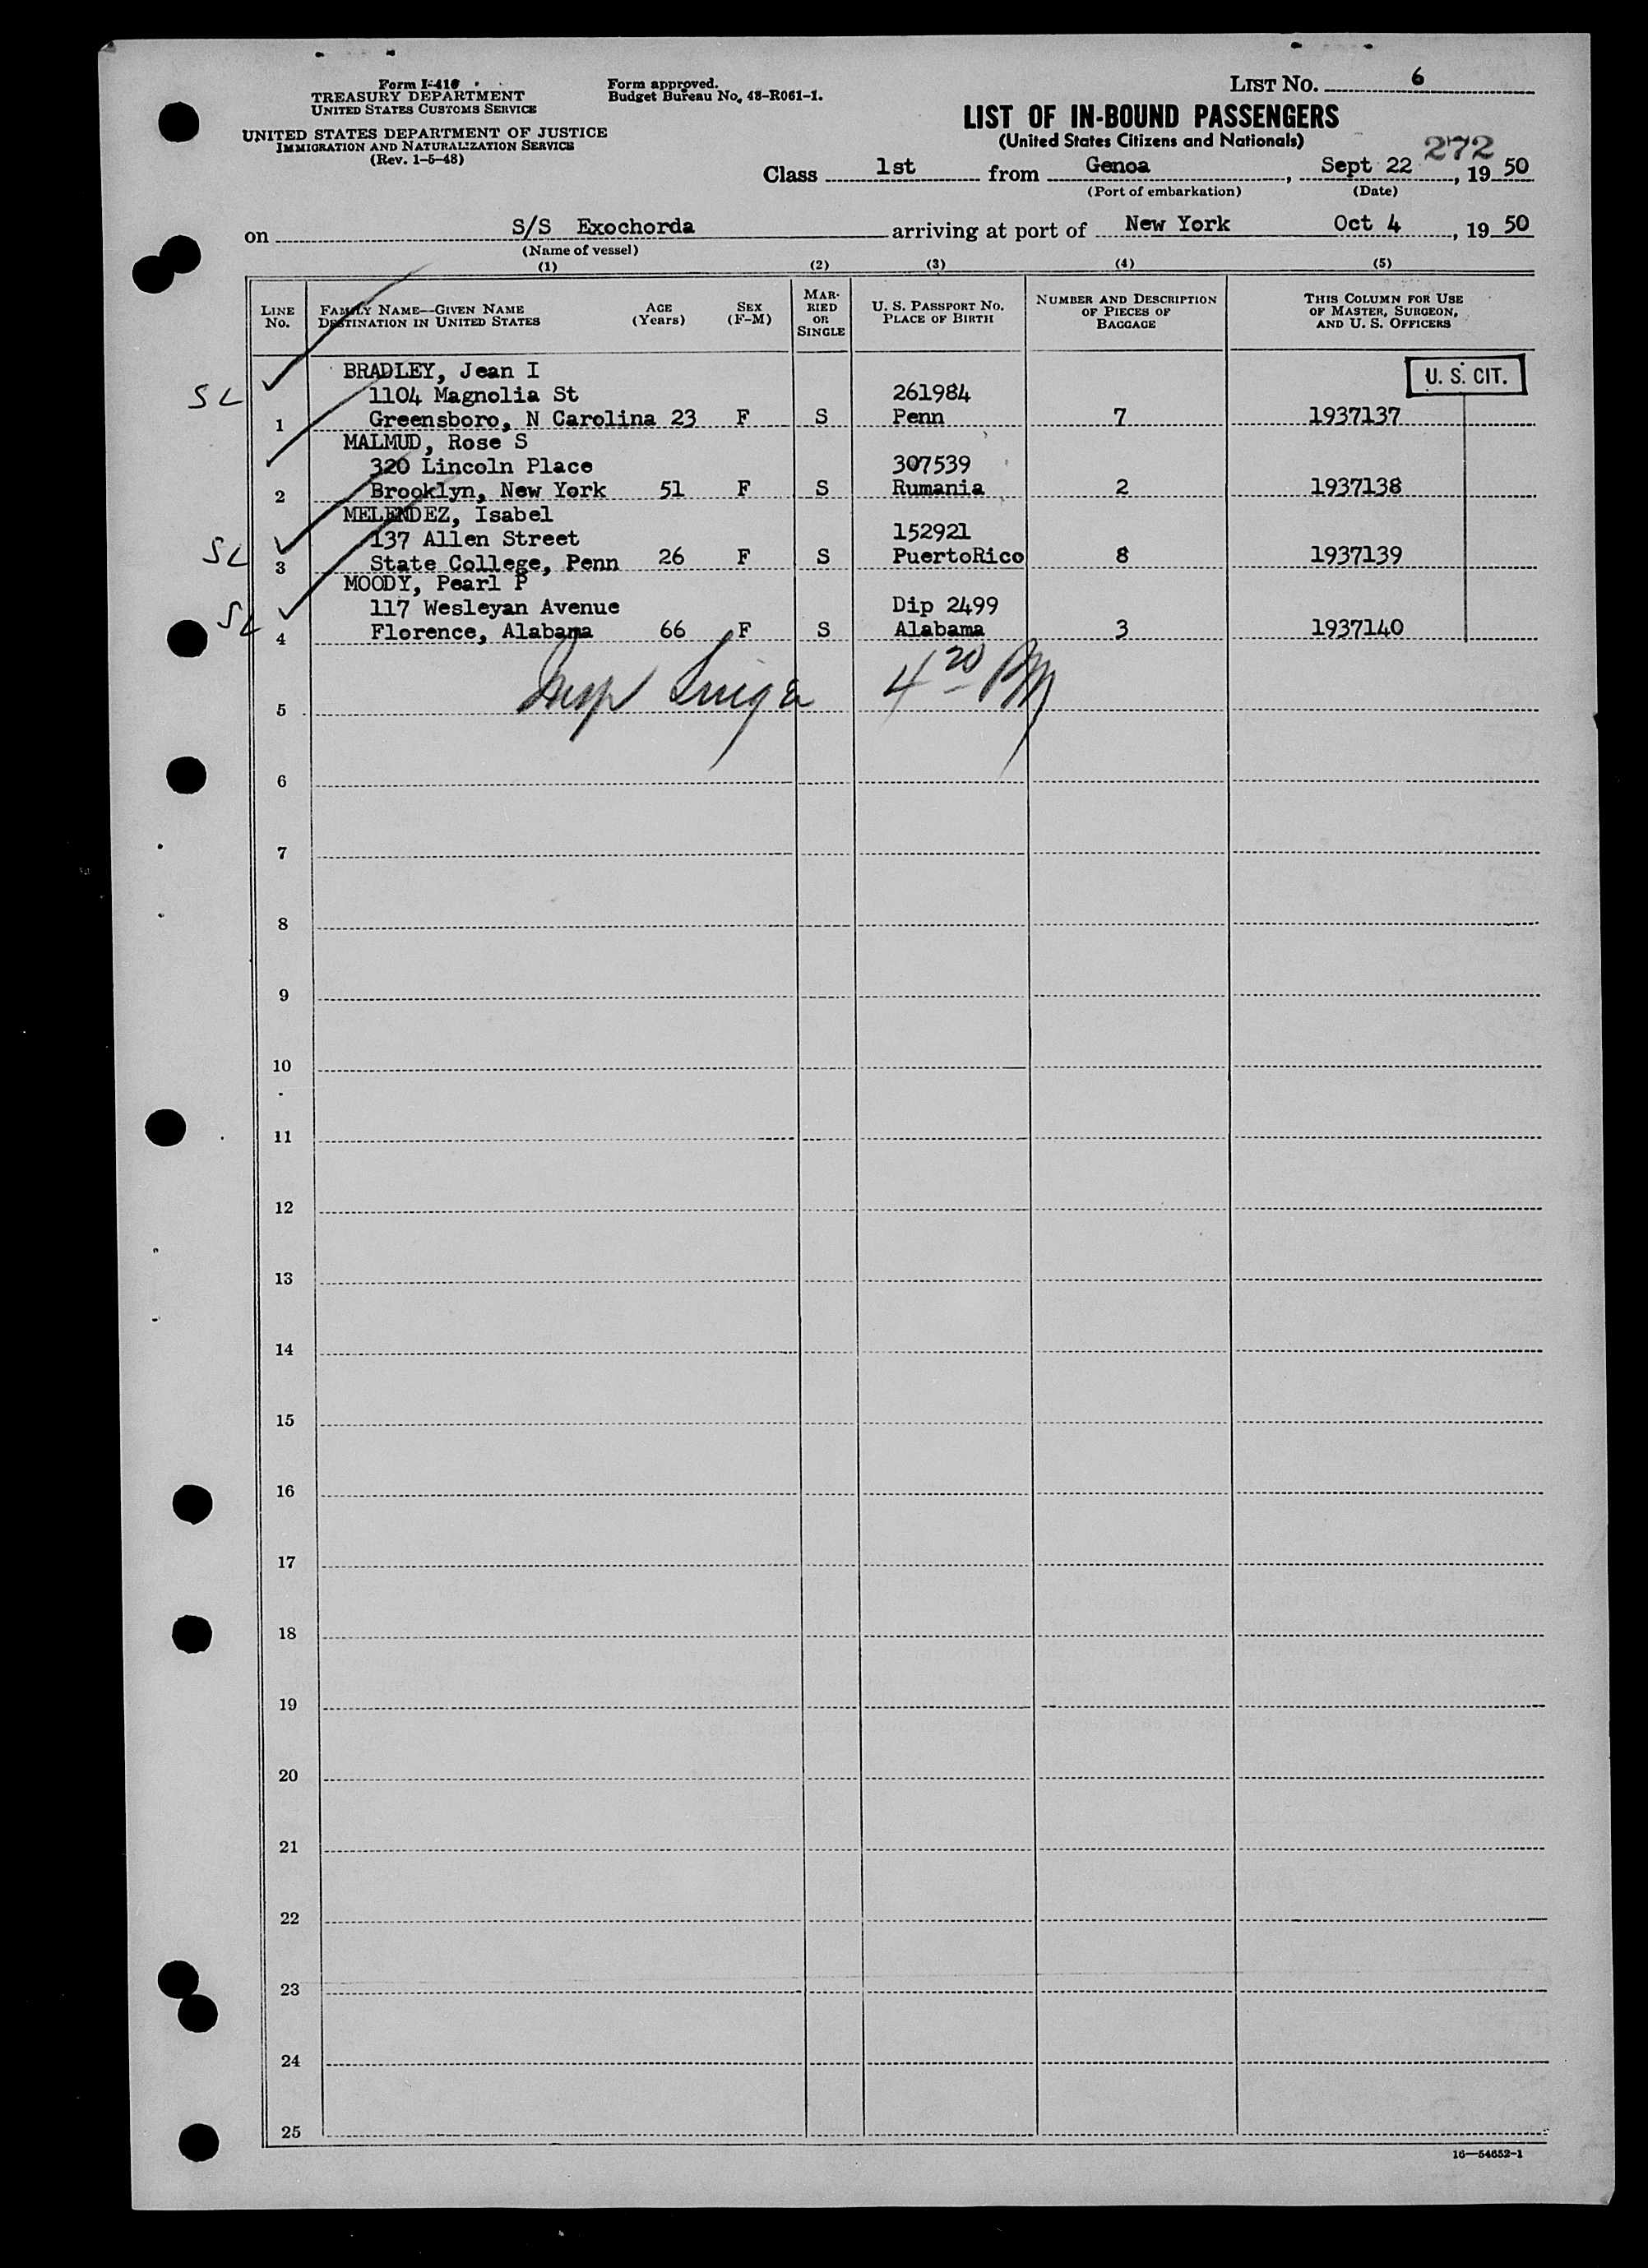 Form I-416
TREASURY DEPARTMENT
UNITED STATES CUSTOMS SERVICE
UNITED STATES DEPARTMENT OF JUSTICE
IMMIGRATION AND NATURALIZATION SERVICE
(Rev. 1-5-48)
Form approved.
Budget Bureau No. 48-R061-1.
LIST NO. 6
LIST OF IN-BOUND PASSENGERS
(United States Citizens and Nationals)
272
Class 1st from Genoa, Sept 22, 19 50
(Port of embarkation) (Date)
on S/S Exochorda arriving at port of New York Oct 4, 19 50
(Name of vessel)
(1) (2) (3) (4) (5)
LINE No.
FAMILY NAME—GIVEN NAME
DESTINATION IN UNITED STATES
AGE (Years)
SEX (F-M)
MARRIED OR SINGLE
U. S. PASSPORT NO.
PLACE OF BIRTH
NUMBER AND DESCRIPTION OF PIECES OF BAGGAGE
THIS COLUMN FOR USE OF MASTER, SURGEON, AND U. S. OFFICERS
U. S. CIT.
BRADLEY, Jean I
SL 1104 Magnolia St 261984
1 Greensboro, N Carolina 23 F S Penn 7 1937137
MALMUD, Rose S
320 Lincoln Place 307539
2 Brooklyn, New York 51 F S Rumania 2 1937138
MELENDEZ, Isabel
137 Allen Street 152921
SL 3 State College, Penn 26 F S PuertoRico 8 1937139
MOODY, Pearl P
SL 117 Wesleyan Avenue Dip 2499
4 Florence, Alabama 66 F S Alabama 3 1937140
Insp 4 20 PM
5
6
7
8
9
10
11
12
13
14
15
16
17
18
19
20
21
22
23
24
25
16—54652-1